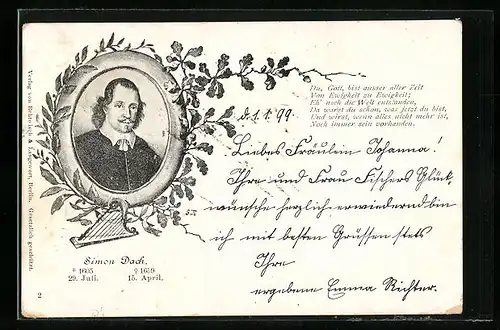 Du, Gott, bist ausser aller Zeit
Von Ewigkeit zu Ewigkeit;
Eh' noch die Welt entstanden,
Da warst du schon, was jetzt du bist,
Und wirst, wenn alles nicht mehr ist,
Noch immer sein vorhanden.
d. 1. 1. 99.
Liebes Fräulein Johanna!
Ihre und Frau Fischers Glück-
wünsche herzlich erwiedernd bin
ich mit besten Grüssen stets
Ihre
ergebene Emma Richter.
Simon Dach,
* 1605 † 1659
29. Juli. 15. April.
2
Verlag von &, Berlin. Gesetzlich geschützt.